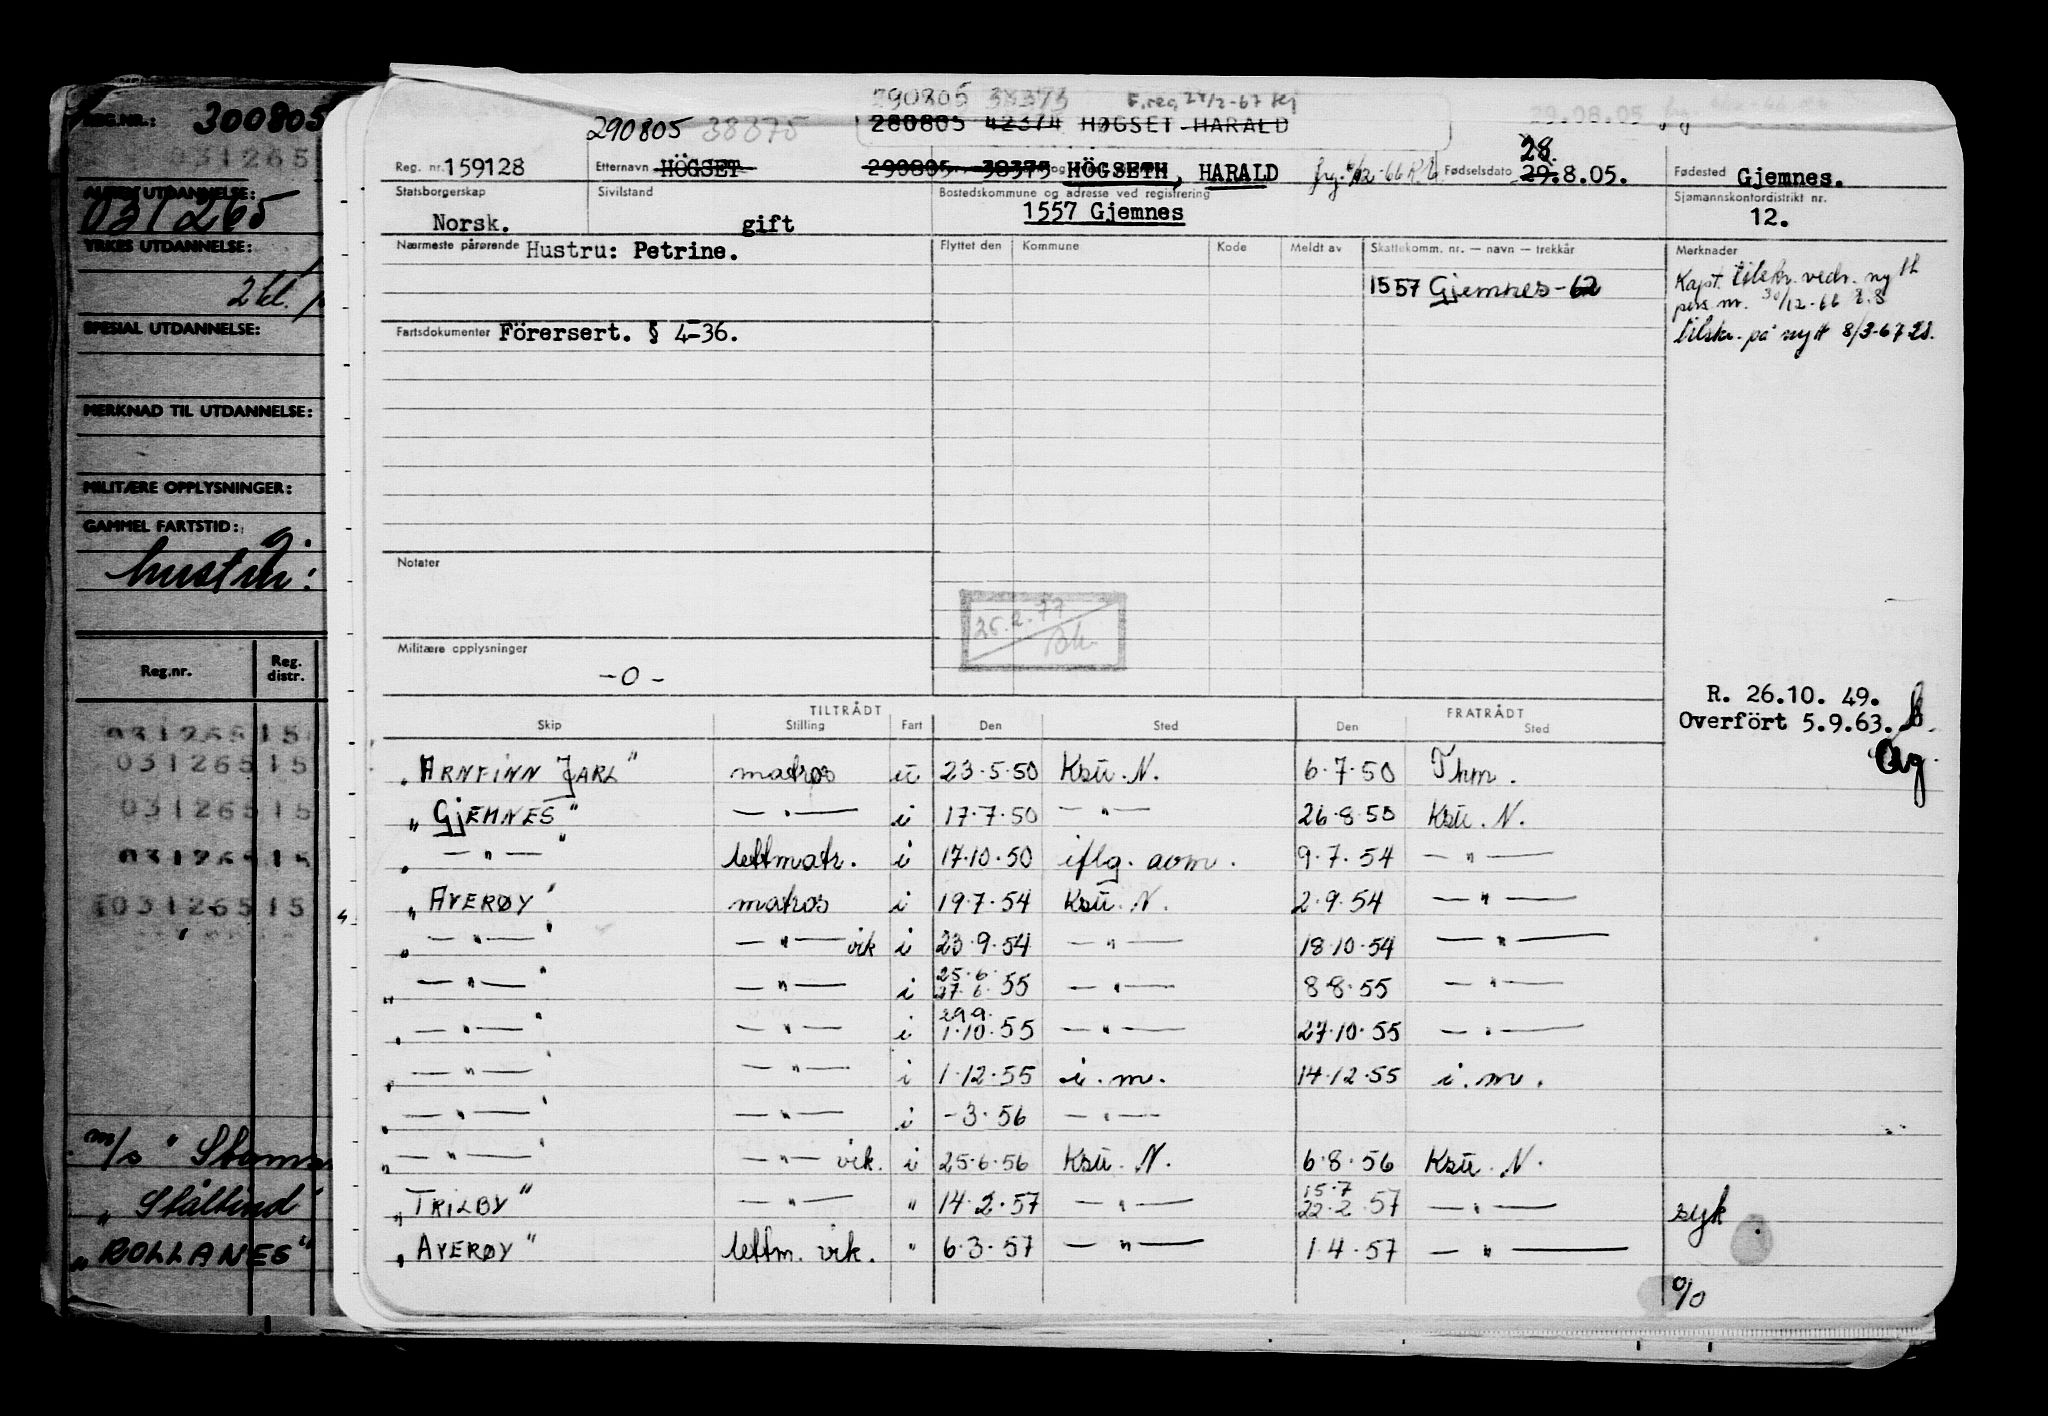 REG.NR.: 300805
031265
ALMEN UTDANNELSE:
031265
YRKES UTDANNELSE:
2 kl.
SPESIAL UTDANNELSE:
MERKNAD TIL UTDANNELSE:
MILITÆRE OPPLYSNINGER:
GAMMEL FARTSTID:
g.
hustru:
Reg.nr. Reg. distr.
031265 15
031265 15
031265 15
031265 15
031265 15
m/s "
" Ståltind
"ROLLANES"
290805 38373 F.reg.
290805 38375 280805 42374 HØGSET HARALD 29.08.05
28.
Reg. nr. 159128 Etternavn HÖGSET 290805 38375 HÖGSETH, HARALD Fødselsdato 29.8.05. Fødested Gjemnes.
Statsborgerskap Sivilstand Bostedskommune og adresse ved registrering Sjømannskontordistrikt nr.
Norsk. gift 1557 Gjemnes 12.
Nærmeste pårørende Hustru: Petrine. Flyttet den Kommune Kode Meldt av Skattekomm. nr. — navn — trekkår Merknader
1557 Gjemnes-62 Kapt. tilskr. vedr. ny
pers nr. 30/12-66
Fartsdokumenter Förersert. § 4-36. tilskr. på nytt 8/3-67
Notater
25.2.77
Militære opplysninger
-0-
R. 26.10. 49.
Overfört 5.9.63.
TILTRÅDT FRATRÅDT
Skip Stilling Fart Den Sted Den Sted
"ARNFINN JARL" matros u 23.5.50 Ksu. N. 6.7.50 Thm.
"GJEMNES" — " — i 17.7.50 — " — 26.8.50 Ksu. N.
" — " — " lettmatr. i 17.10.50 iflg. avm. 9.7.54 — " —
"AVERØY" matros i 19.7.54 Ksu. N. 2.9.54 — " —
" — " — " — " — vik i 23.9.54 — " — 18.10.54 — " —
" — " — " — " — i 25.6. 27.6.55 — " — 8.8.55 — " —
" — " — " — " — i 29.9. 1.10.55 — " — 27.10.55 — " —
" — " — " — " — i 1.12.55 i.m. 14.12.55 i.m.
" — " — " — " — i -3.56 — " —
" — " — " — " — vik. i 25.6.56 Ksu. N. 6.8.56 Ksu. N.
"TRILBY" — " — " 14.2.57 — " — 15.7 22.2.57 — " — syk
"AVERØY" lettm. vik. " 6.3.57 — " — 1.4.57 — " —
%